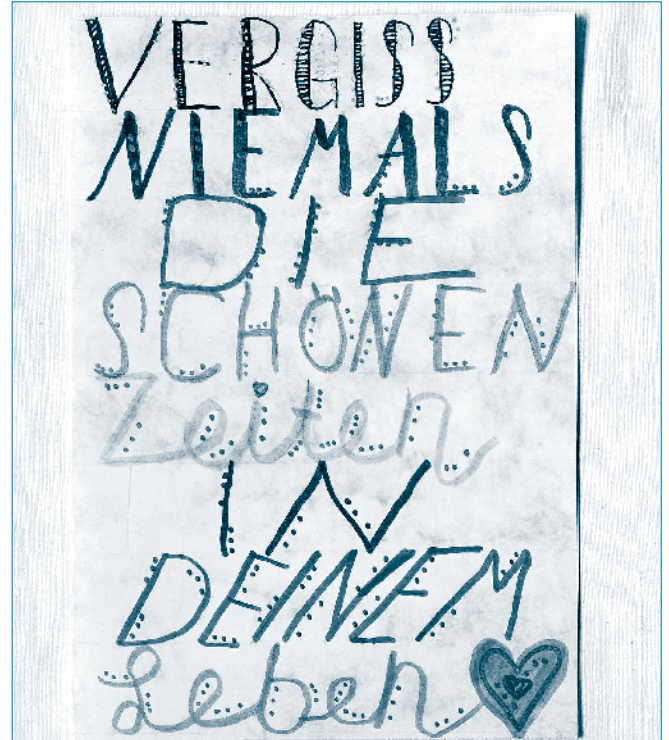 VERGISS
NIEMALS
DIE
SCHÖNEN
Zeiten
IN
DEINEM
Leben